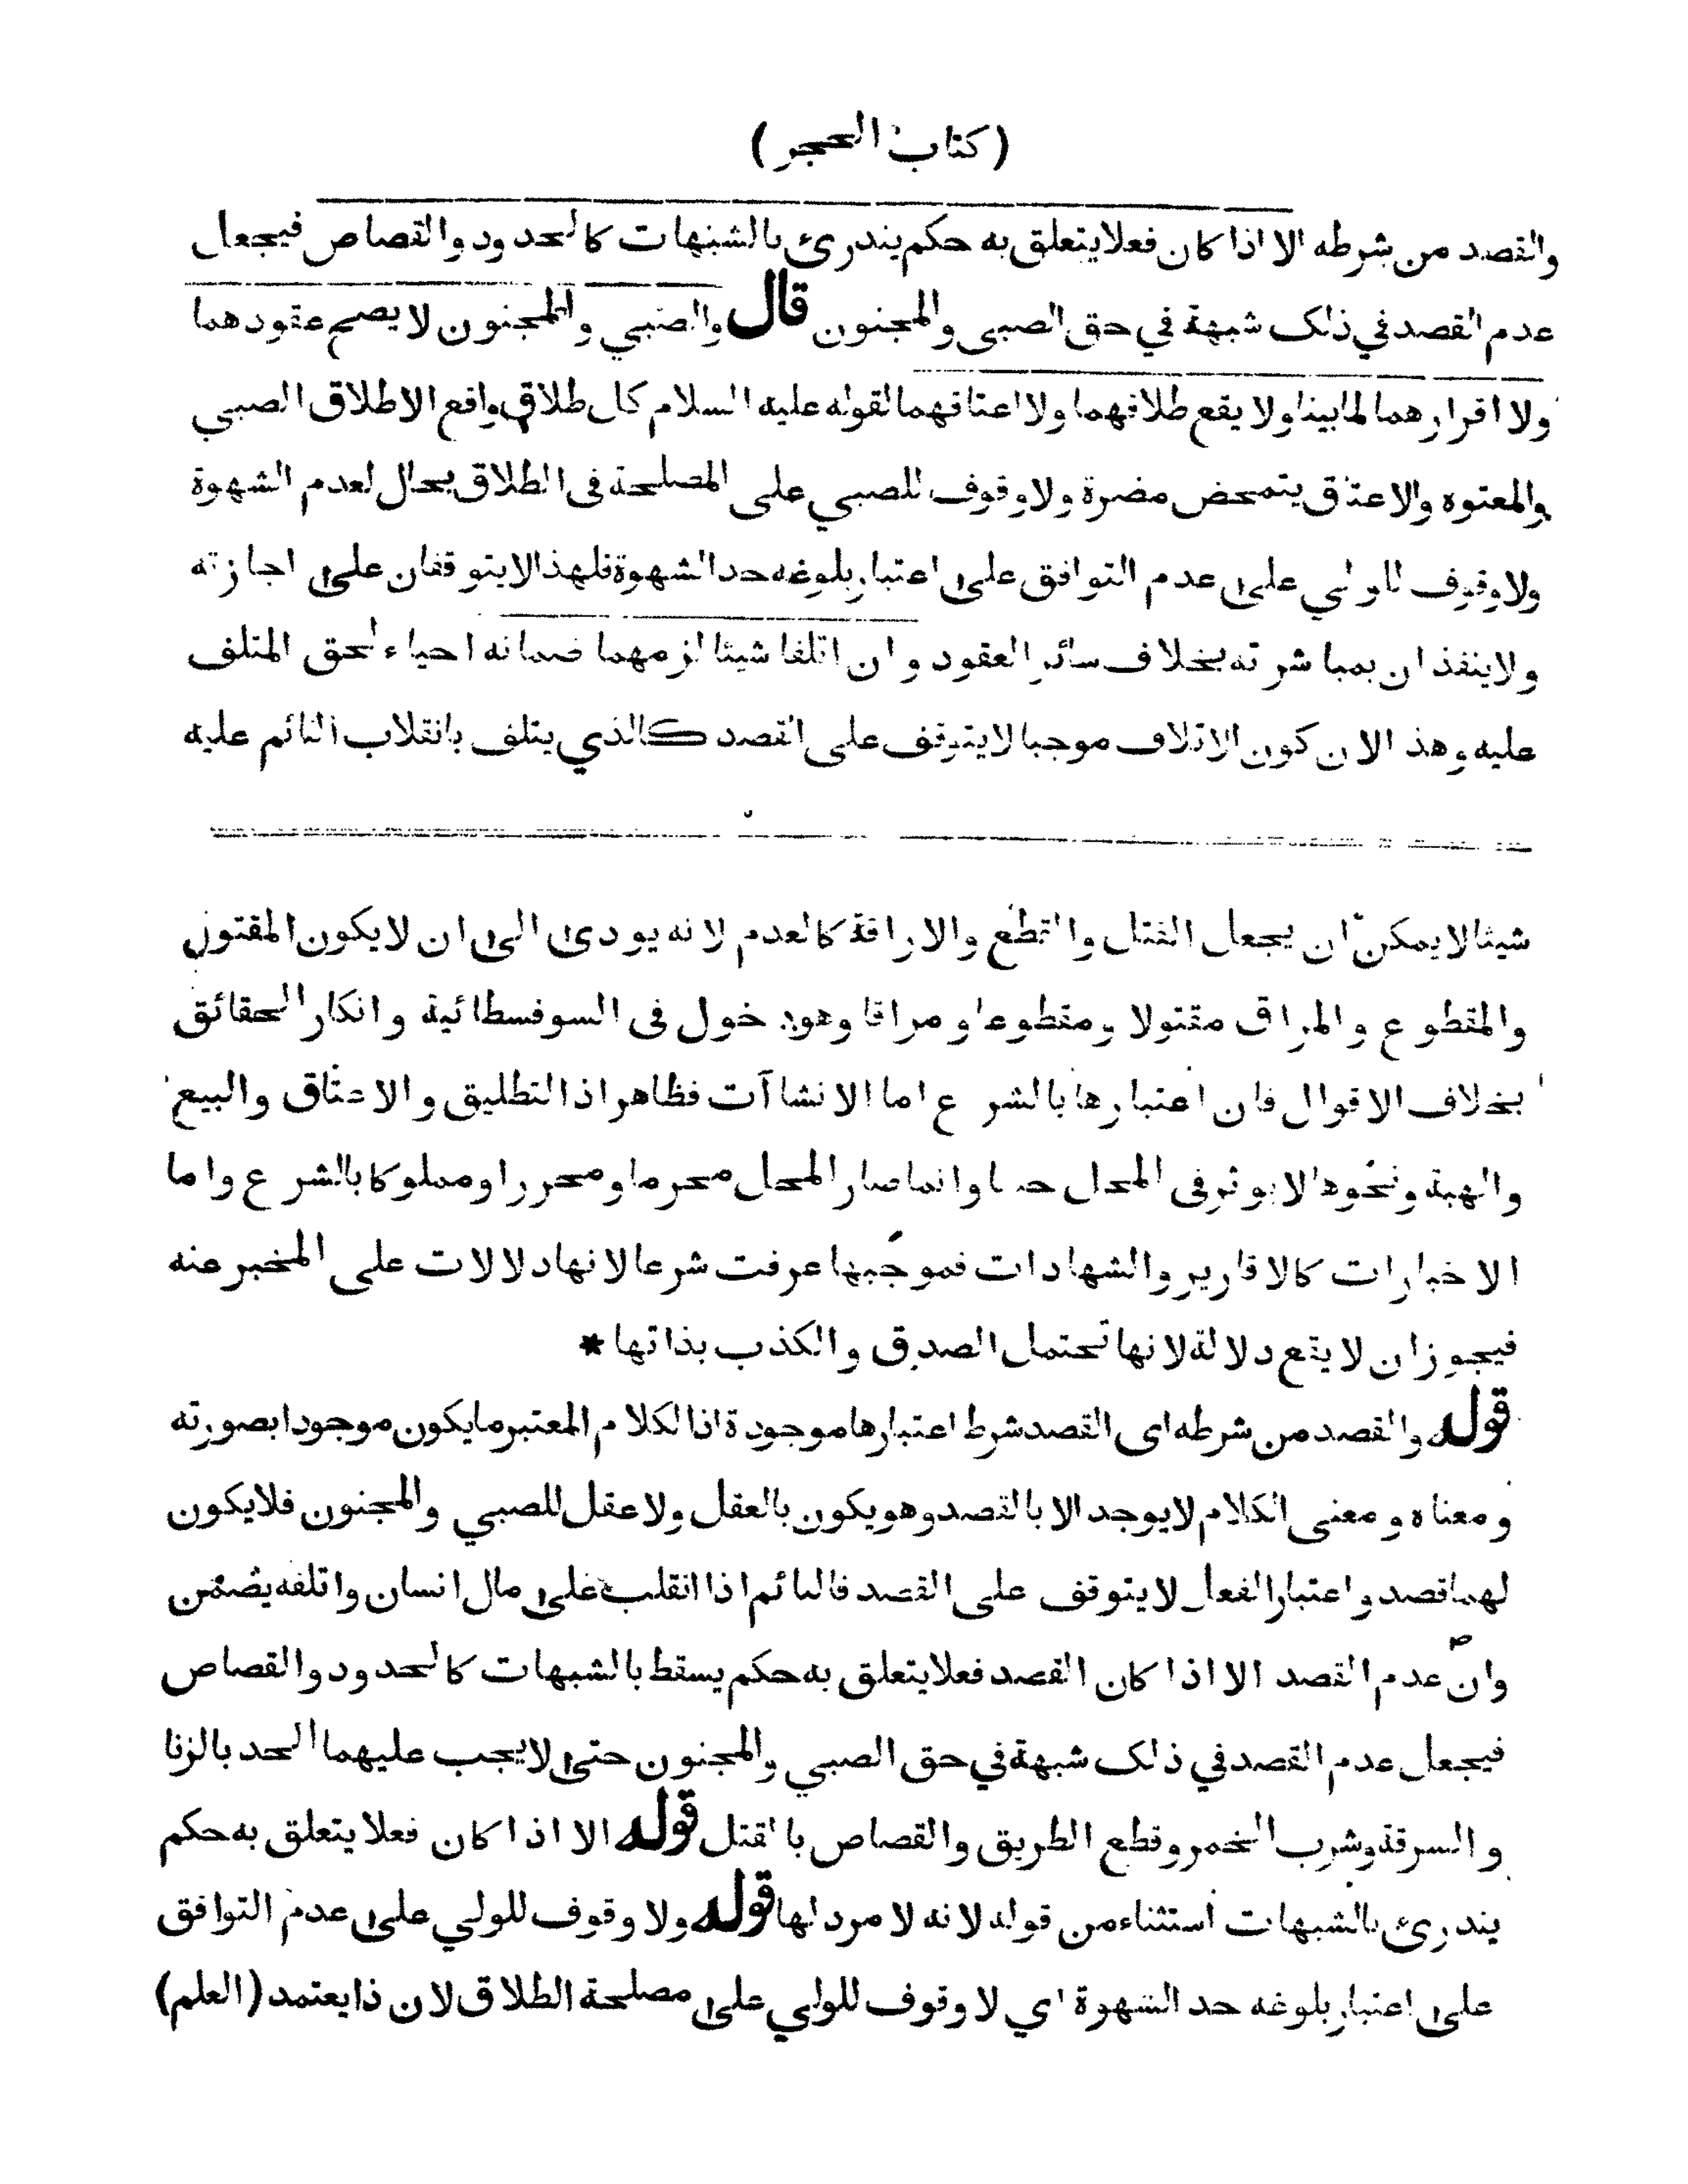 (كتاب الحجر)
والقصد من شرطه الا اذا كان فعلا يتعلق به حكم يندرئ بالشبهات كالحدود والقصاص فيجعل
عدم القصد في ذلك شبهة في حق الصبى والمجنون قال والصبي والمجنون لا يصح عقودهما
ولا اقرارهما لما بينا ولا يقع طلاقهما ولا اعتاقهما لقوله عليه السلام كل طلاق واقع الا طلاق الصبي
والمعتوه والاعتاق يتمحض مضرة ولا وقوف للصبي على المصلحة في الطلاق بحال لعدم الشهوة
ولا وقوف للولي على عدم التوافق على اعتبار بلوغه حد الشهوة فلهذا لا يتوقفان على اجازته
ولا ينفذان بمباشرته بخلاف سائر العقود وان اتلفا شيئا لزمهما ضمانه احياء لحق المتلف
عليه وهذا لان كون الاتلاف موجبا لا يتوقف على القصد كالذي يتلف بانقلاب النائم عليه
شيئا لا يمكن ان يجعل القتل والقطع والاراقة كالعدم لانه يودى الى ان لا يكون المقتول
والمقطوع والمراق مقتولا ومقطوعا ومراقا وهو دخول في السوفسطائية وانكار الحقائق
بخلاف الاقوال فان اعتبارها بالشرع اما الانشاآت فظاهر اذ التطليق والاعتاق والبيع
والهبة ونحوها لا يوثر في المحل حسا وانما صار المحل محرما ومحررا ومملوكا بالشرع واما
الاخبارات كالاقارير والشهادات فموجبها عرفت شرعا لانها دلالات على المخبر عنه
فيجوز ان لا يقع دلالة لانها تحتمل الصدق والكذب بذاتها *
قوله والقصد من شرطه اى القصد شرط اعتبارها موجودة اذ الكلام المعتبر ما يكون موجودا بصورته
ومعناه ومعنى الكلام لا يوجد الا بالقصد وهو يكون بالعقل ولا عقل للصبي والمجنون فلا يكون
لهما قصد واعتبار الفعل لا يتوقف على القصد فالنائم اذا انقلب على مال انسان واتلفه يضمن
وان عدم القصد الا اذا كان القصد فعلا يتعلق به حكم يسقط بالشبهات كالحدود والقصاص
فيجعل عدم القصد في ذلك شبهة في حق الصبي والمجنون حتى لا يجب عليهما الحد بالزنا
والسرقة وشرب الخمر وقطع الطريق والقصاص بالقتل قوله الا اذا كان فعلا يتعلق به حكم
يندرئ بالشبهات استثناء من قوله لانه لا مرد لها قوله ولا وقوف للولي على عدم التوافق
على اعتبار بلوغه حد الشهوة اي لا وقوف للولي على مصلحة الطلاق لان ذا يعتمد (العلم)